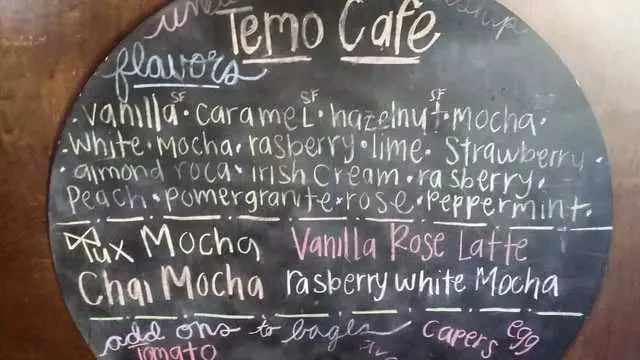 Temo Café
flavors
SF SF SF
vanilla · carameL · hazelnut · mocha ·
white · mocha · rasberry · lime · Strawberry ·
· almond roca · irish Cream · rasberry ·
Peach · pomergranite · rose · Peppermint ·
Tux Mocha Vanilla Rose Latte
Chai Mocha rasberry white Mocha
add ons to bagels capers egg
Tomato